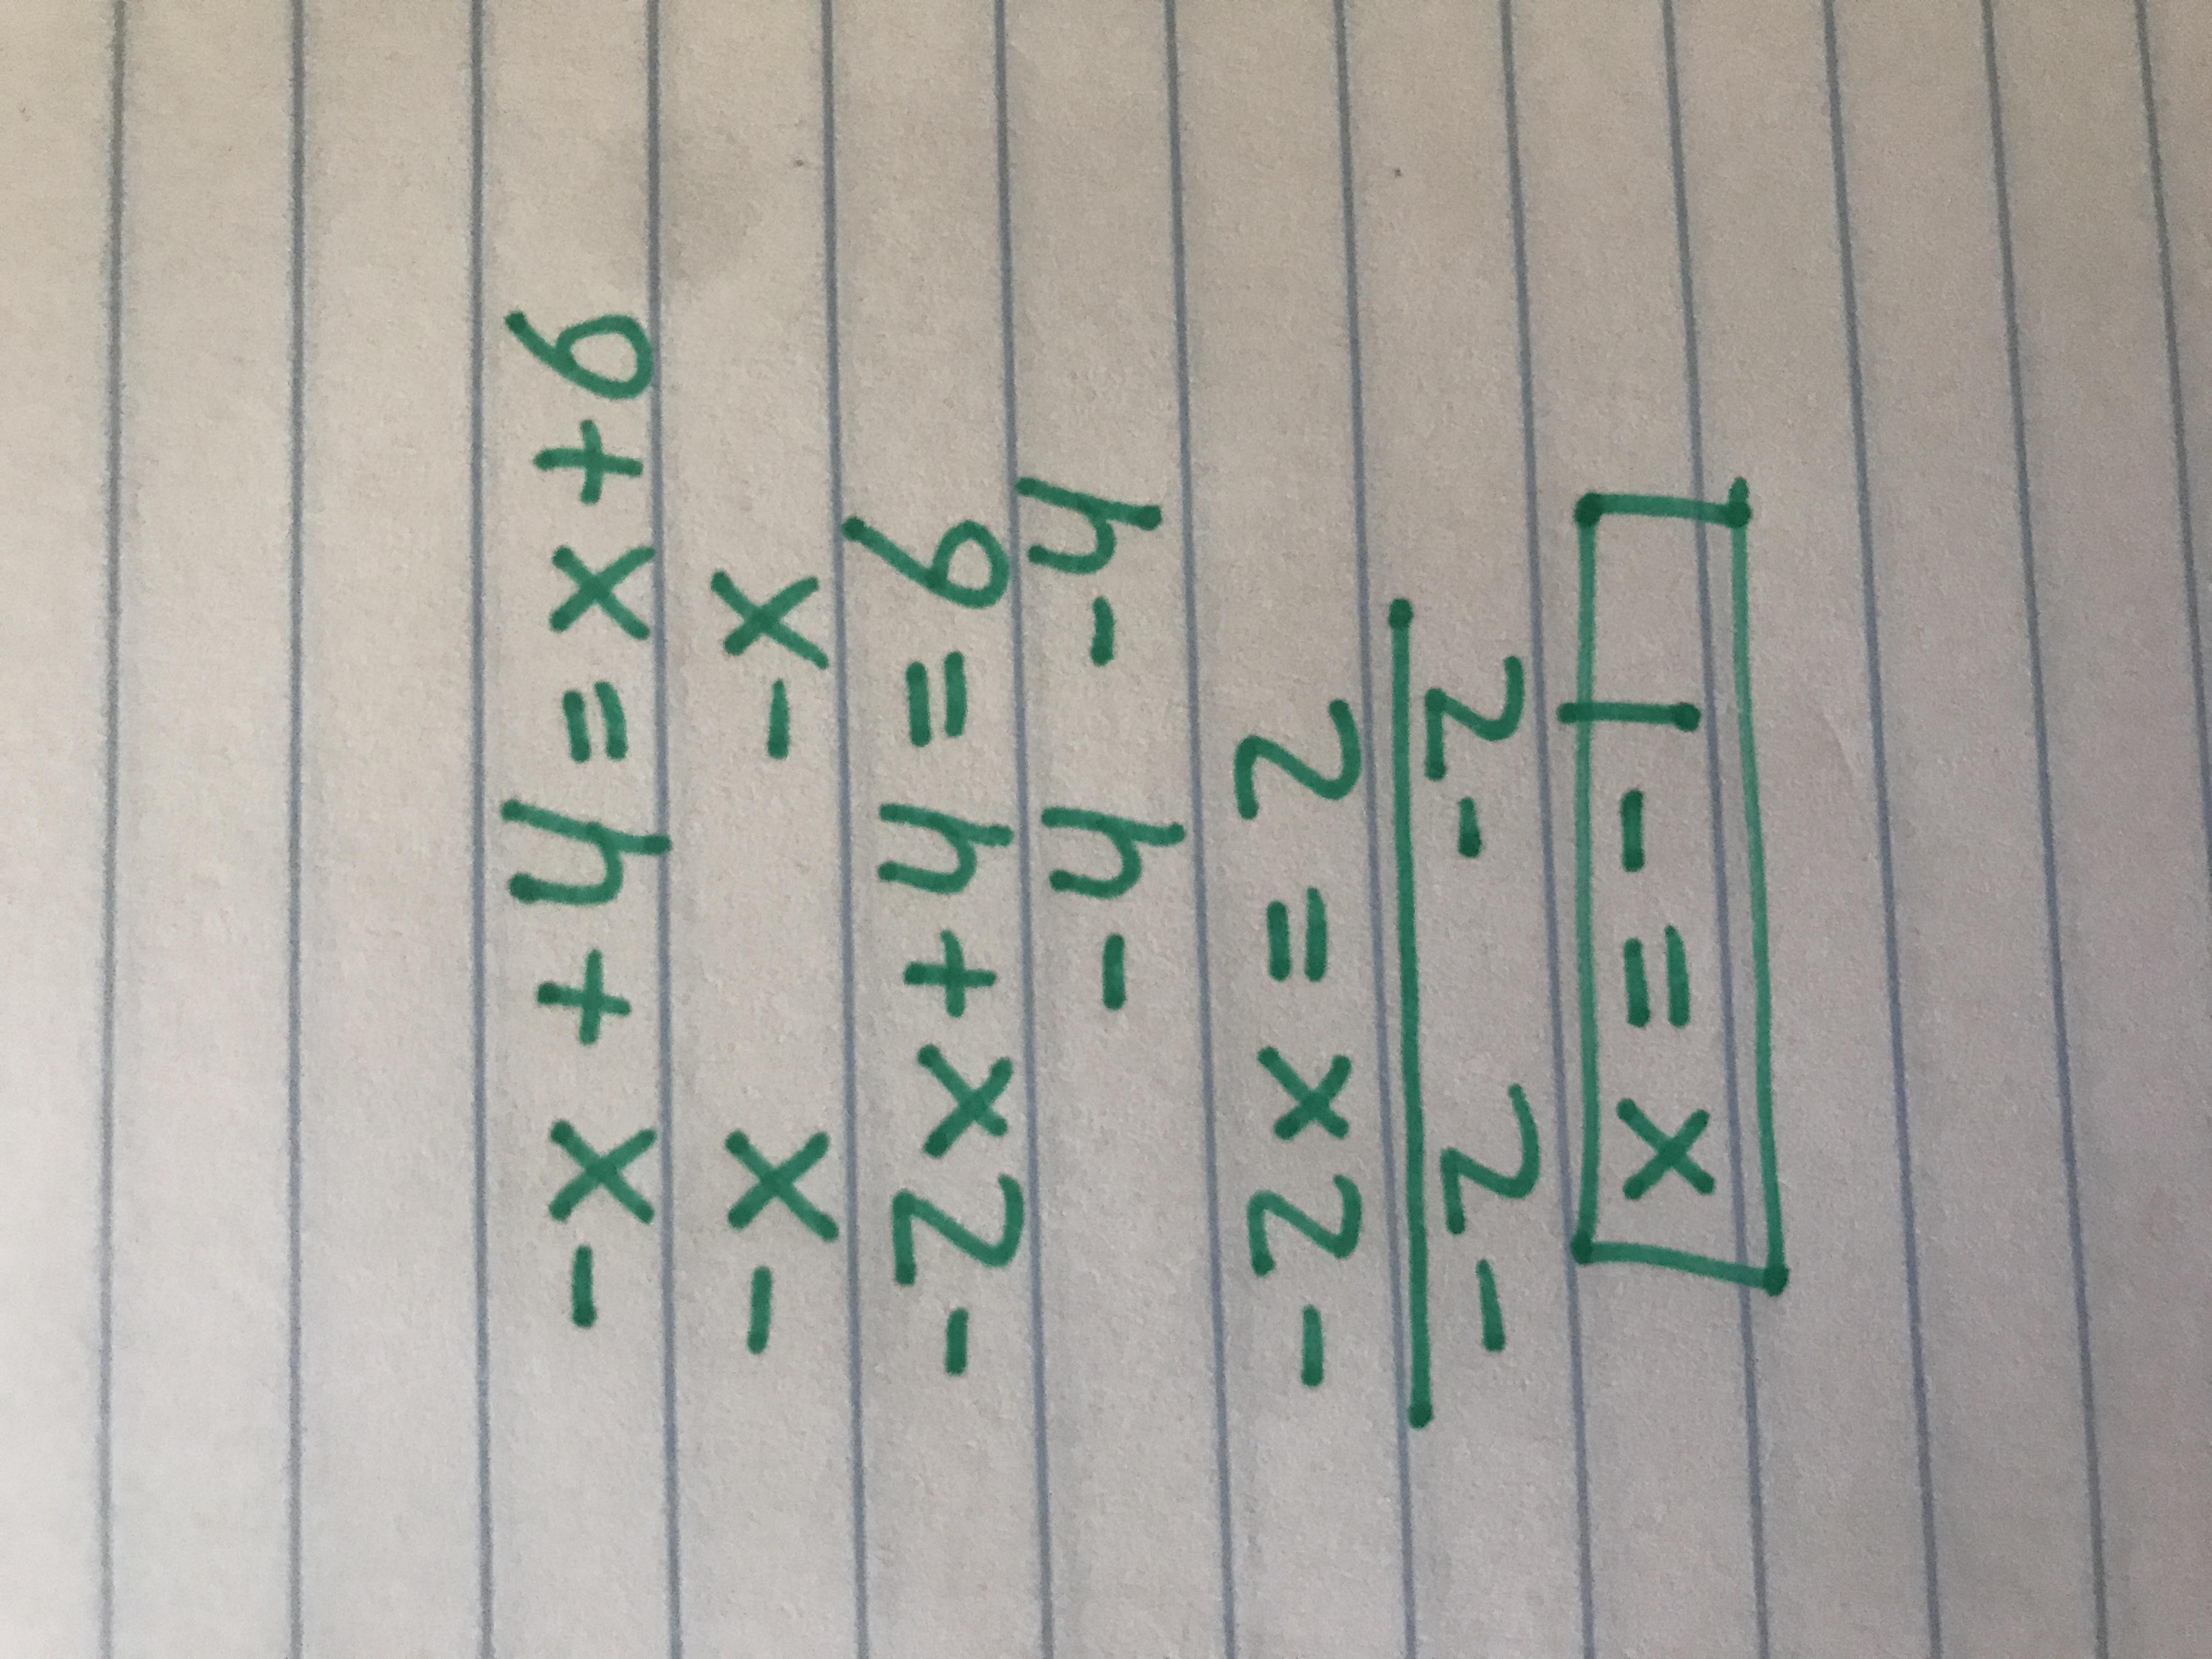 -x + 4 = x + 6
-x -x
-2x + 4 = 6
-4 -4
-2x = 2
-2 -2
x = -1